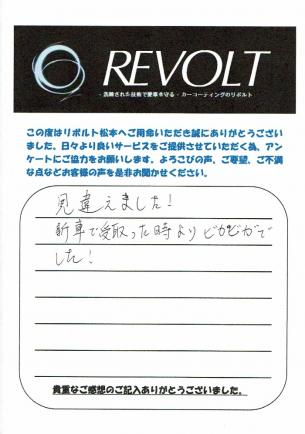 REVOLT
- 洗練された技術で愛車を守る - カーコーティングのリボルト
この度はリボルト松本へご用命いただき誠にありがとうござい
ました。日々より良いサービスをご提供させていただく為、アン
ケートにご協力をお願いします。よろこびの声、ご要望、ご不満
な点などお客様の声を是非お聞かせください。
見違えました!
新車で受取った時よりピカピカで
した!
貴重なご感想のご記入ありがとうございました。